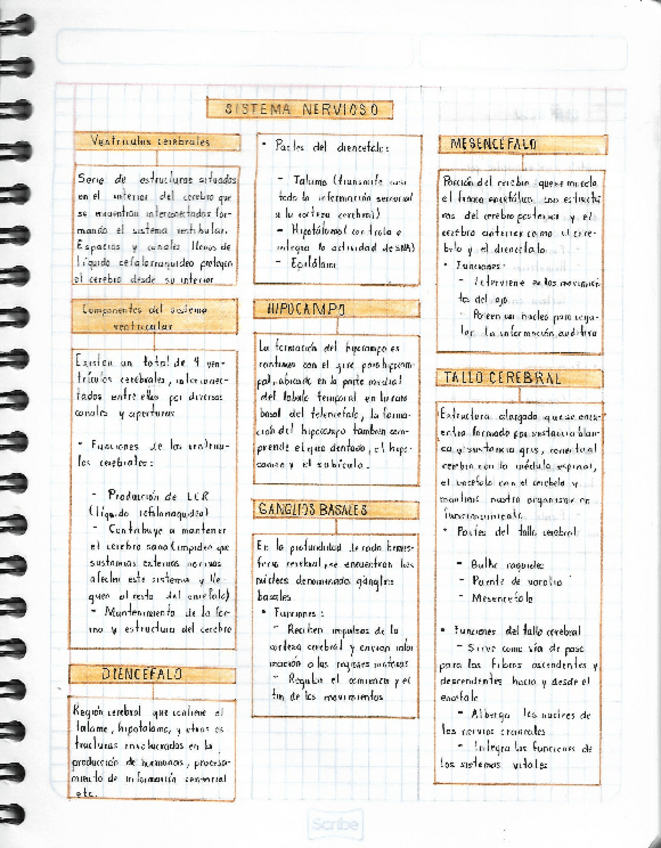 SISTEMA NERVIOSO
Ventriculos cerebrales
Serie de estructuras situadas
en el interior del cerebro que
se encuentran interconectados for-
mando el sistema ventricular.
Espacios y canales llenos de
líquido cefalorraquideo protegen
el cerebro desde su interior
Componentes del sistema
ventricular
Existen un total de 4 ven-
trículos cerebrales, interconec-
tados entre ellos por diversos
canales y aperturas
• Funciones de los ventricu-
los cerebrales:
- Producción de LCR
(líquido cefaloraquideo)
- Contribuye a mantener
el cerebro sano (impiden que
sustancias externas nocivas
afecten este sistema y lle-
guen al resto del encéfalo)
- Mantenimiento de la for-
ma y estructura del cerebro
DIENCEFALO
Región cerebral que contiene el
tálamo, hipotálamo, y otras es-
tructuras involucradas en la
producción de hormonas, procesa-
miento de información sensorial
etc.
• Partes del diencefalo:
- Talamo (transmite casi
toda la información sensorial
a la corteza cerebral)
- Hipotálamo (controla e
integra la actividad del SNA)
- Epitálamo
HIPOCAMPO
La formación del hipocampo es
continua con el giro parahipocam-
pal, ubicado en la parte medial
del lóbulo temporal en la cara
basal del telencefalo, la forma-
ción del hipocampo tambien com-
prende el giro dentado, el hipo-
campo y el subículo.
GANGLIOS BASALES
En la profundidad de cada hemis-
ferio cerebral, se encuentran los
núcleos denominados gánglios
basales
• Funciones:
- Reciben impulsos de la
corteza cerebral y envian infor
mación a las regiones motoras
- Regula el comienzo y el
fin de los movimientos
MESENCEFALO
Porción del cerebro que se mezcla
el tronco encefálico son estructu
ras del cerebro posterior y el
cerebro anterior como el cere-
belo y el diencefalo
• Funciones:
- Interviene en los movimien-
tos del ojo
- Poseen un núcleo para regu-
lar la información auditiva
TALLO CEREBRAL
Estructura alargada que se encu-
entra formado por sustancia blan-
ca y sustancia gris, conecta al
cerebro con la médula espinal,
el encéfalo con el cerebelo y
mantiene nuestro organismo en
funcionamiento
• Partes del tallo cerebral
- Bulbo raquideo
- Puente de varolio
- Mesencefalo
• Funciones del tallo cerebral
- Sirve como vía de paso
para las fibras ascendentes y
descendentes hacia y desde el
encéfalo
- Alberga los núcleos de
los nervios craneales
- Integra las funciones de
los sistemas vitales
Scribe